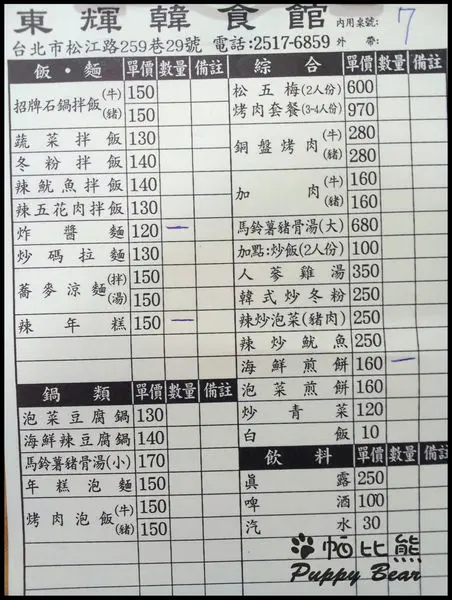 東輝韓食館 內用桌號: 7
台北市松江路259巷29號 電話:2517-6859 外帶:
飯・麵 單價 數量 備註
招牌石鍋拌飯(牛) 150
(豬) 150
蔬菜拌飯 130
冬粉拌飯 140
辣魷魚拌飯 140
辣五花肉拌飯 130
炸醬麵 120 一
炒碼拉麵 130
蕎麥涼麵(拌) 150
(湯) 150
辣年糕 150 一
鍋類 單價 數量 備註
泡菜豆腐鍋 130
海鮮辣豆腐鍋 140
馬鈴薯豬骨湯(小) 170
年糕泡麵 150
烤肉泡飯(牛) 150
(豬) 150
綜合 單價 數量 備註
松五梅(2人份) 600
烤肉套餐(3-4人份) 970
銅盤烤肉(牛) 280
(豬) 280
加肉(牛) 160
(豬) 160
馬鈴薯豬骨湯(大) 680
加點:炒飯(2人份) 100
人蔘雞湯 350
韓式炒冬粉 250
辣炒泡菜(豬肉) 250
辣炒魷魚 250
海鮮煎餅 160 一
泡菜煎餅 160
炒青菜 120
白飯 10
飲料 單價 數量 備註
眞露 250
啤酒 100
汽水 30
帕比熊
Puppy Bear